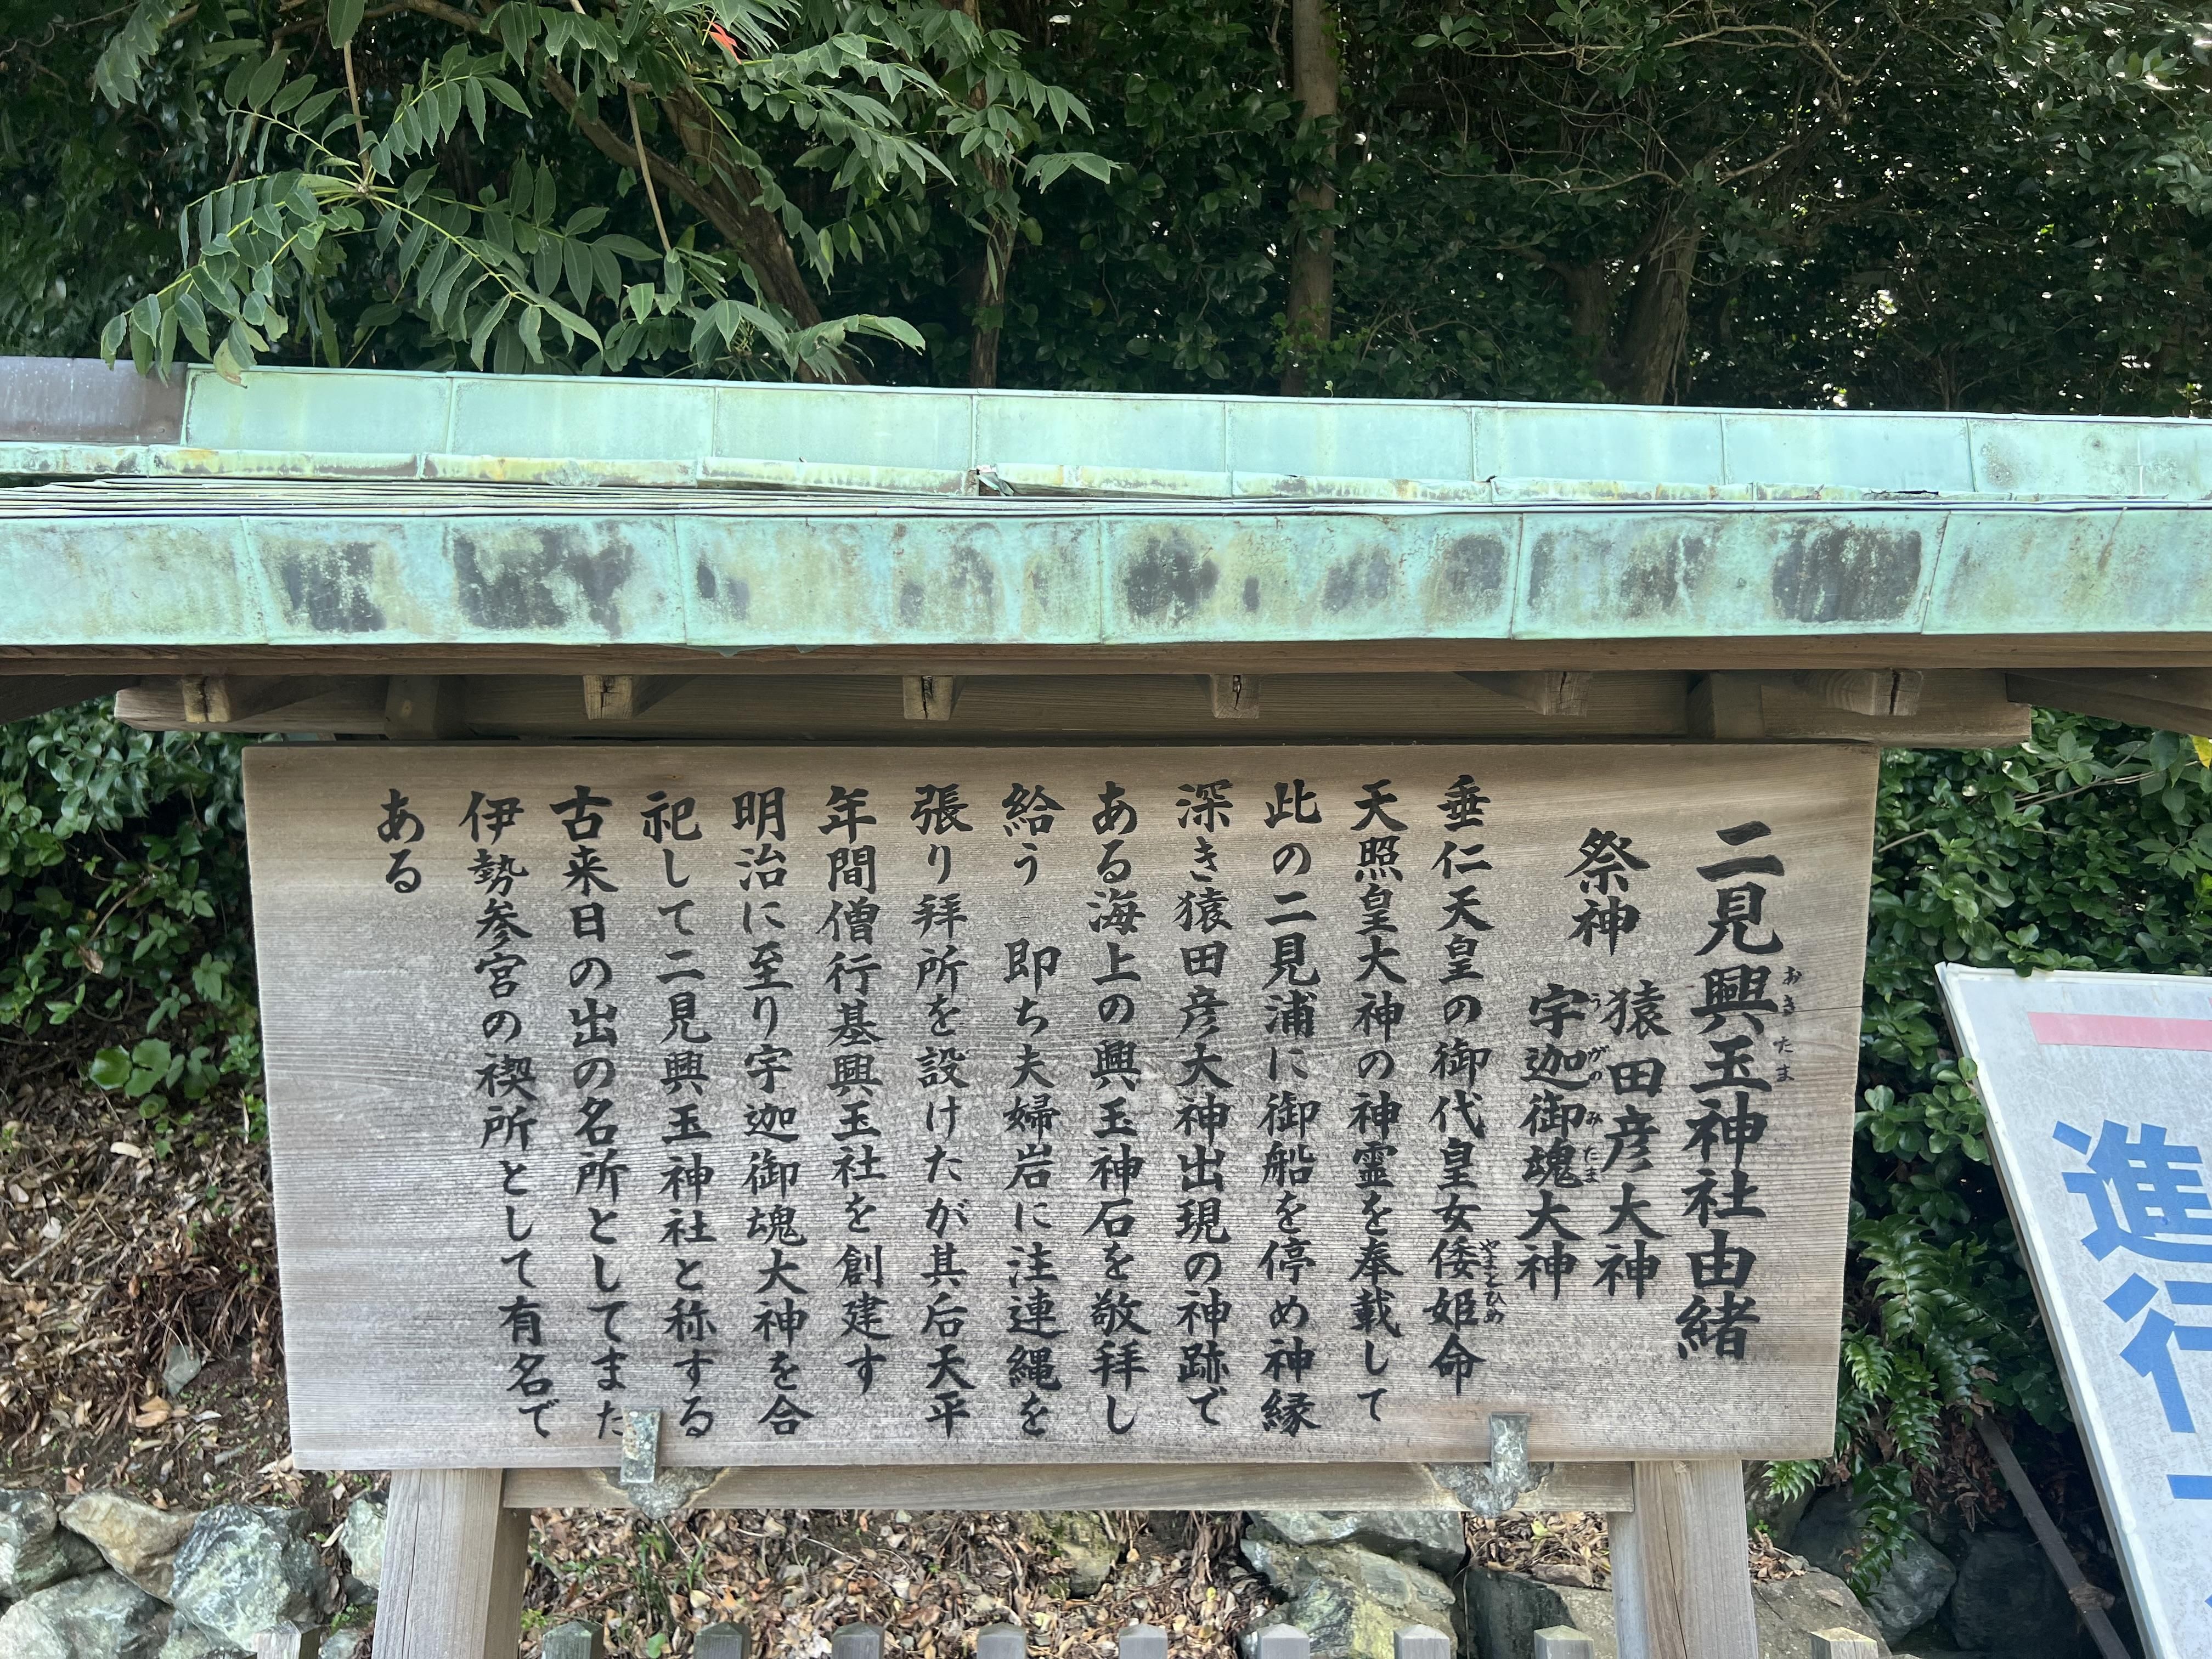 二見興玉神社由緒
おきたま
祭神
猿田彦大神
宇迦御魂大神
うがのみたま
垂仁天皇の御代皇女倭姫命
やまとひめ
天照皇大神の神霊を奉載して
此の二見浦に御船を停め神縁
深き猿田彦大神出現の神跡で
ある海上の興玉神石を敬拝し
給う 即ち夫婦岩に注連縄を
張り拝所を設けたが其后天平
年間僧行基興玉社を創建す
明治に至り宇迦御魂大神を合
祀して二見興玉神社と称する
古来日の出の名所としてまた
伊勢参宮の禊所として有名で
ある
進行